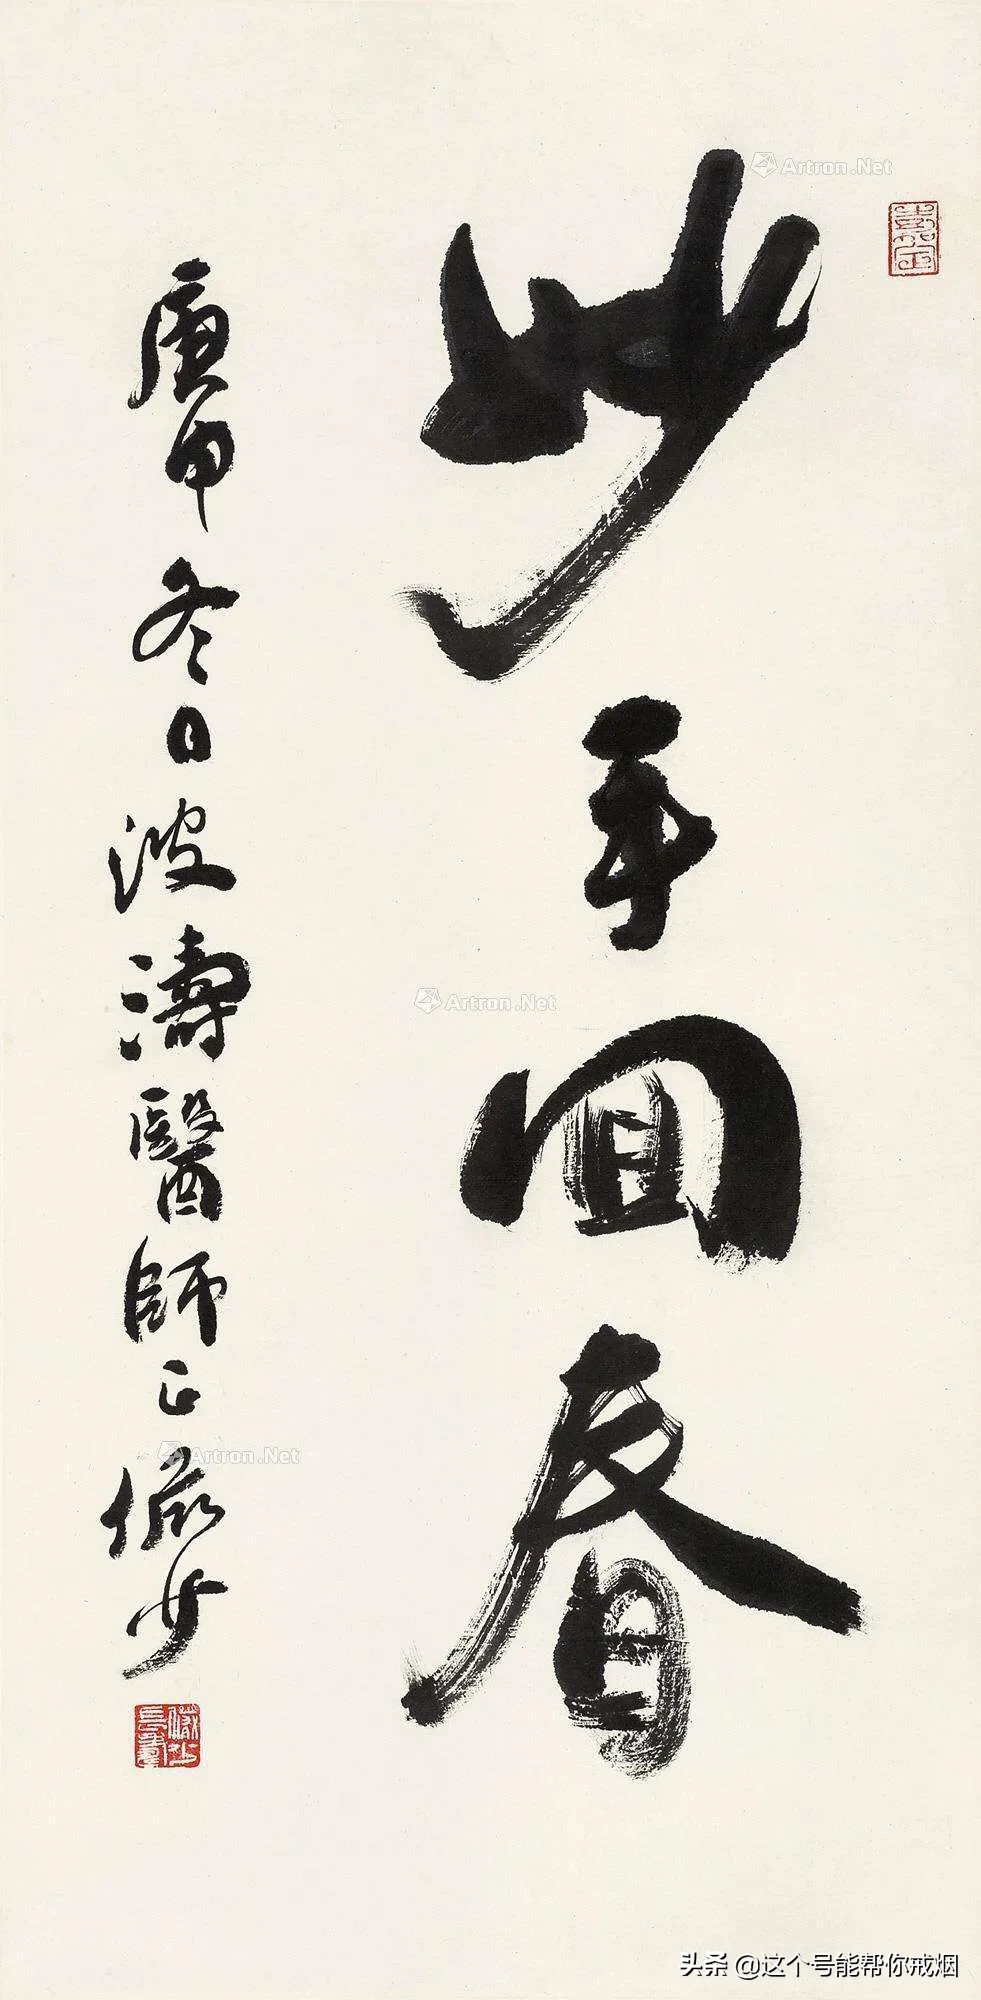 嘉定
妙手回春
庚申冬日波濤醫師正儼少
儼少長壽
Artron.Net
Artron.Net
Artron.Net
头条 @这个号能帮你戒烟